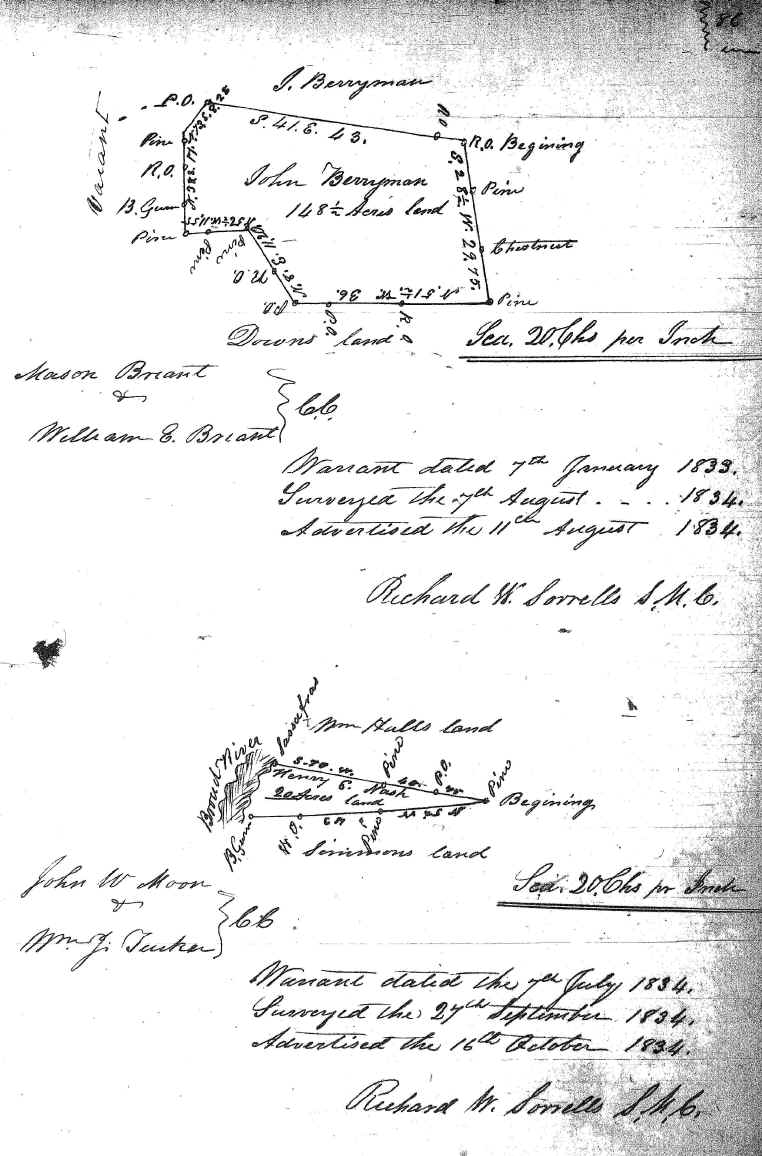 86
J. Berryman
P.O.
S. 41. E. 43.
R.O
R.O. Begining
Vacant
Pine
R.O.
B. Gum
Pine
John Berryman
148½ Acres land
S. 28½ W. 29.75.
Pine
Chestnut
Pine
Pine
Pine
P.O.
N. 51½. W. 36.
P.O.
R.O
Downs land
Sca. 20. Chs per Inch
Mason Breant
&
William E. Breant
C.C.
Warrant dated 7th January 1833.
Surveyed the 7th August . - . . 1834.
Advertised the 11th August 1834.
Richard W. Sorrells S.M.C.
Sassafras
Wm Hulls land
Broad River
S. 70. W.
40.
Pine
P.O.
Pine
Begining
Henry E. Nash
20 Acres land
B. Gum
W.O.
Pine
Simmons land
Sca. 20. Chs pr Inch
John W Moon
&
Wm J. Tucker
CC
Warrant dated the 7th July 1834.
Surveyed the 27th September 1834.
Advertised the 16th October 1834.
Richard W. Sorrells S.M.C.